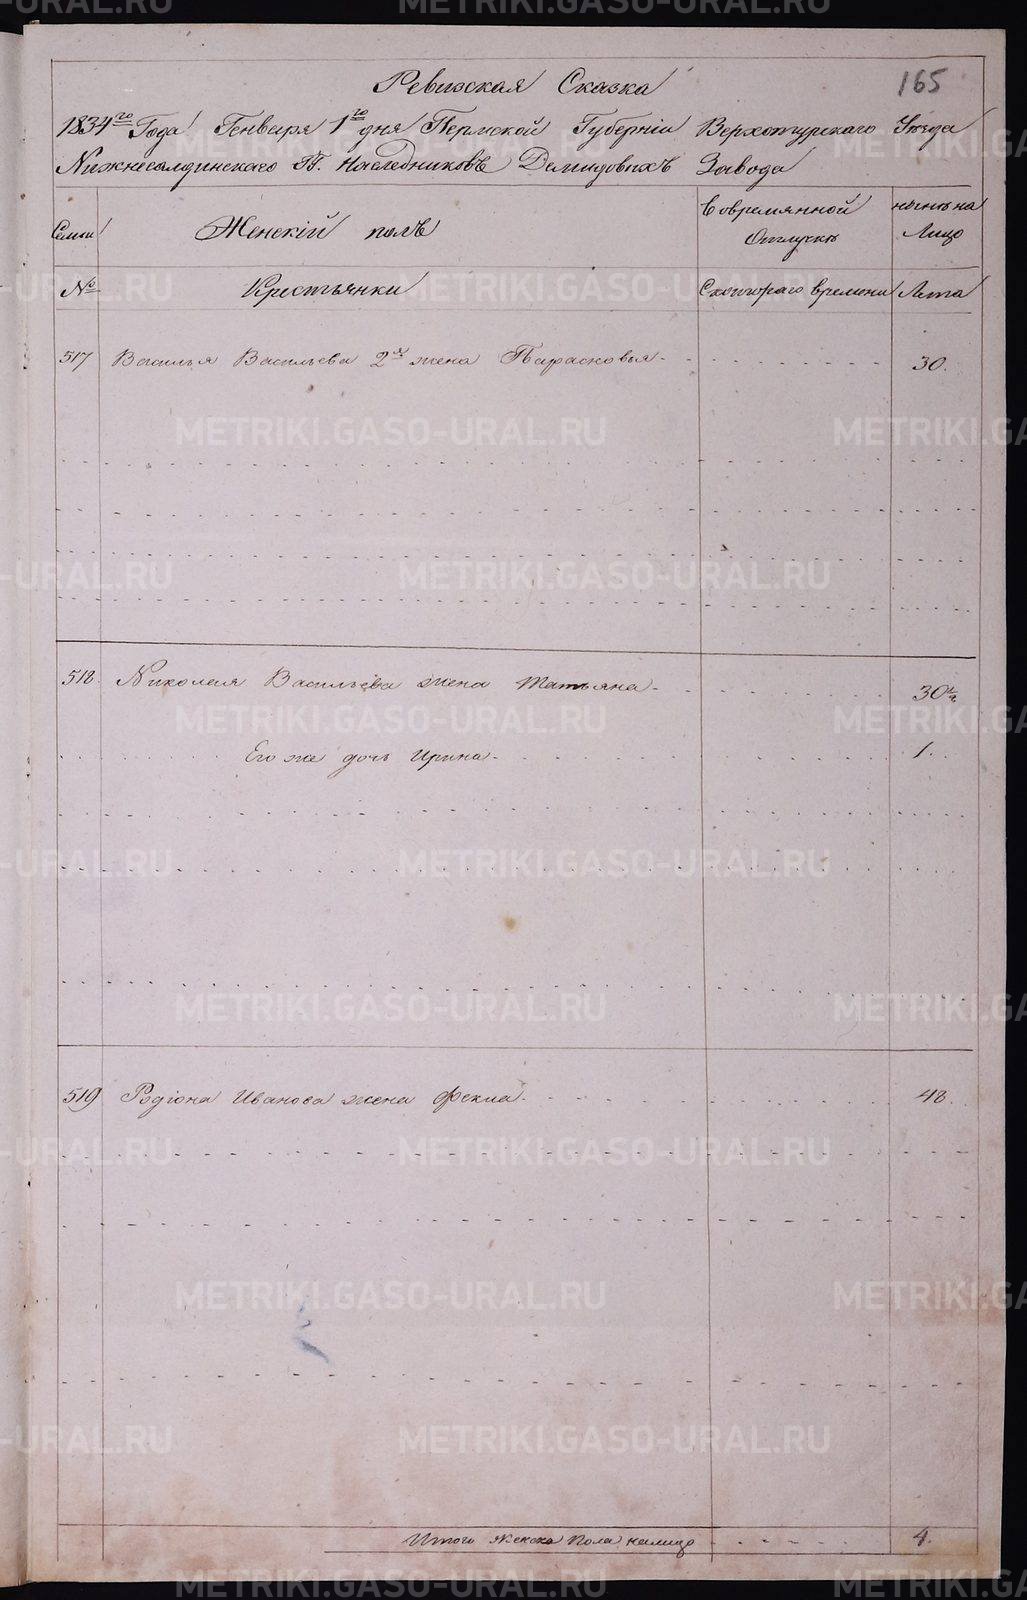 165
Ревизская Сказка
1834го Года Генваря 1го дня Пермской Губернiи Верхотурскаго Уезда
Нижнесалдинскаго ГГ. Наследниковъ Демидовыхъ Завода
Семьи Женскiй полъ Вовремянной Отлучке ныне на Лицо
№ Крестьянки Скоттораго времени Лета
517 Василья Васильева 2я жена Парасковья 30.
518. Николая Васильева жена Татьяна 30
Его же дочь Ирина 1.
519 Родiона Иванова жена Фекла 48.
Итого Женска Пола налицо 4.
METRIKI.GASO-URAL.RU